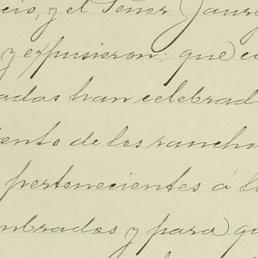 cio, y el Señor Jaurg
y expusieron: que co
adas han celebrad
ento de los rancho
pertenecientes á l
mbrados y para qu